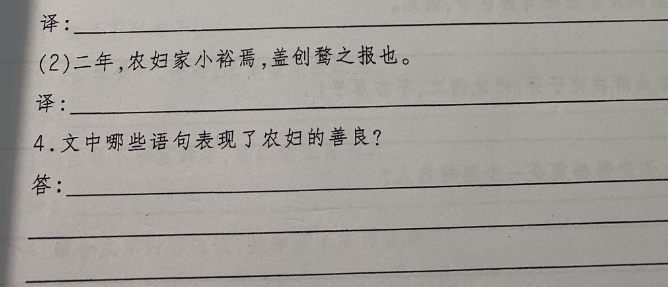 译:
(2)二年,农妇家小裕焉,盖创鹜之报也。
译:
4.文中哪些语句表现了农妇的善良?
答: